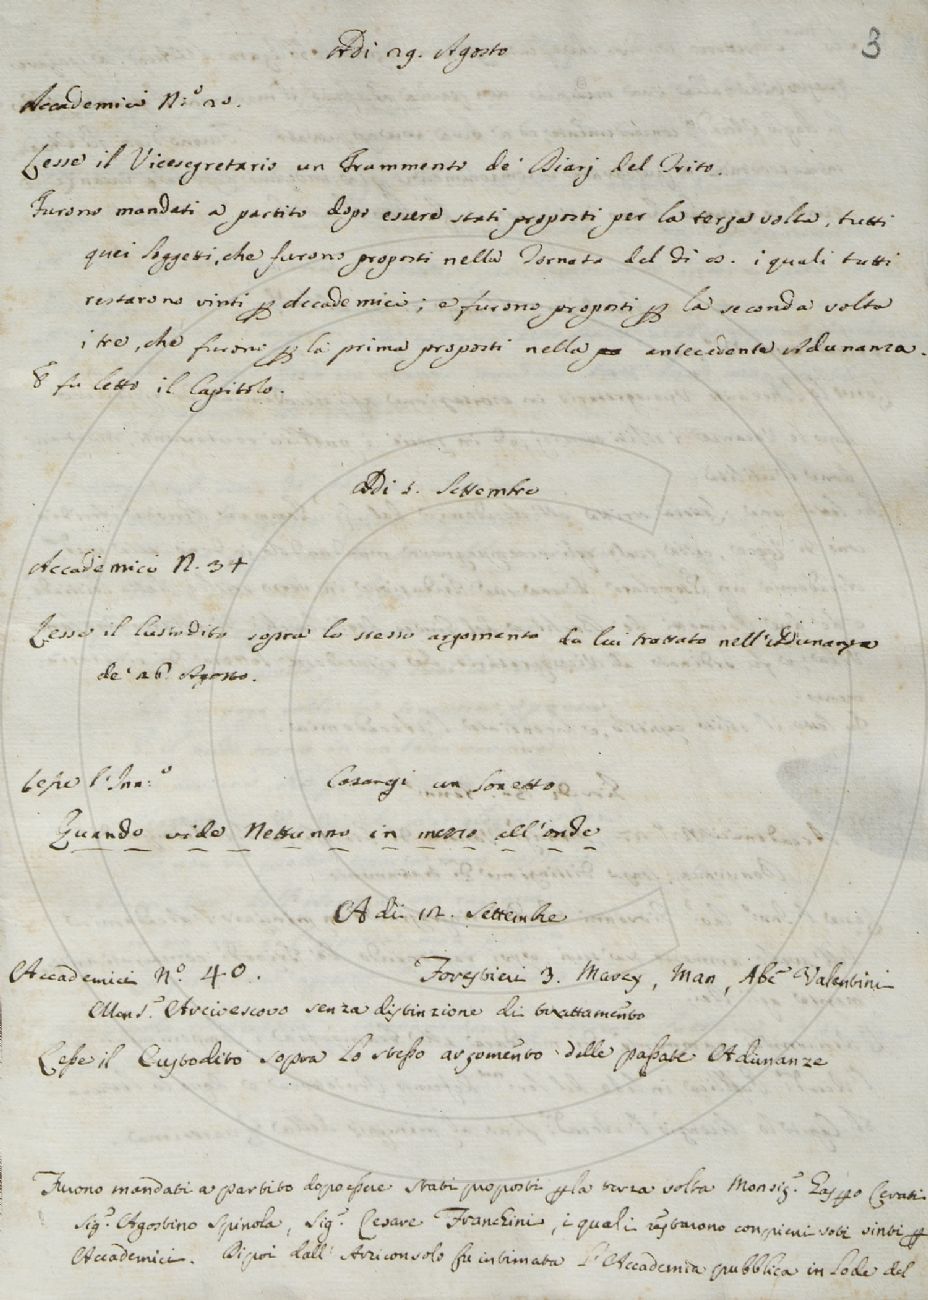 3
Adi 29. Agosto
Accademici N.º 20.
Lesse il Vicesegretario un Frammento de' Diarj del Trito.
Furono mandati a partito dopo essere stati proposti per la terza volta, tutti
quei soggetti, che furono proposti nella Tornata del di 8. i quali tutti
restarono vinti p Accademici; e furono proposti p la seconda volta
i tre, che furono p la prima proposti nella antecedente Adunanza.
E fu letto il Capitolo.
Adi 5. Settembre
Accademici N. 34
Lesse il Custodito sopra lo stesso argomento da lui trattato nell'Adunanza
de' 26 Agosto.
Lesse l'Inn:º Casaregi un Sonetto
Quando vide Nettunno in mezzo all'onde
Adi 12. Settembre
Accademici Nº. 40. Forestieri 3. Maxcy, Man, Abc Valentini
Mons.r Arcivescovo senza distinzione di trattamento
Lesse il Custodito sopra lo stesso argomento delle passate Adunanze
Furono mandati a partito dopo essere stati proposti p la terza volta Monsig.r Gasppo Cerati
Sig.r Agostino Spinola, Sig.r Cesare Franchini, i quali restarono con pieni voti vinti p
Accademici. Dipoi dall' Arciconsolo fu intimata l'Accademia pubblica in Lode del